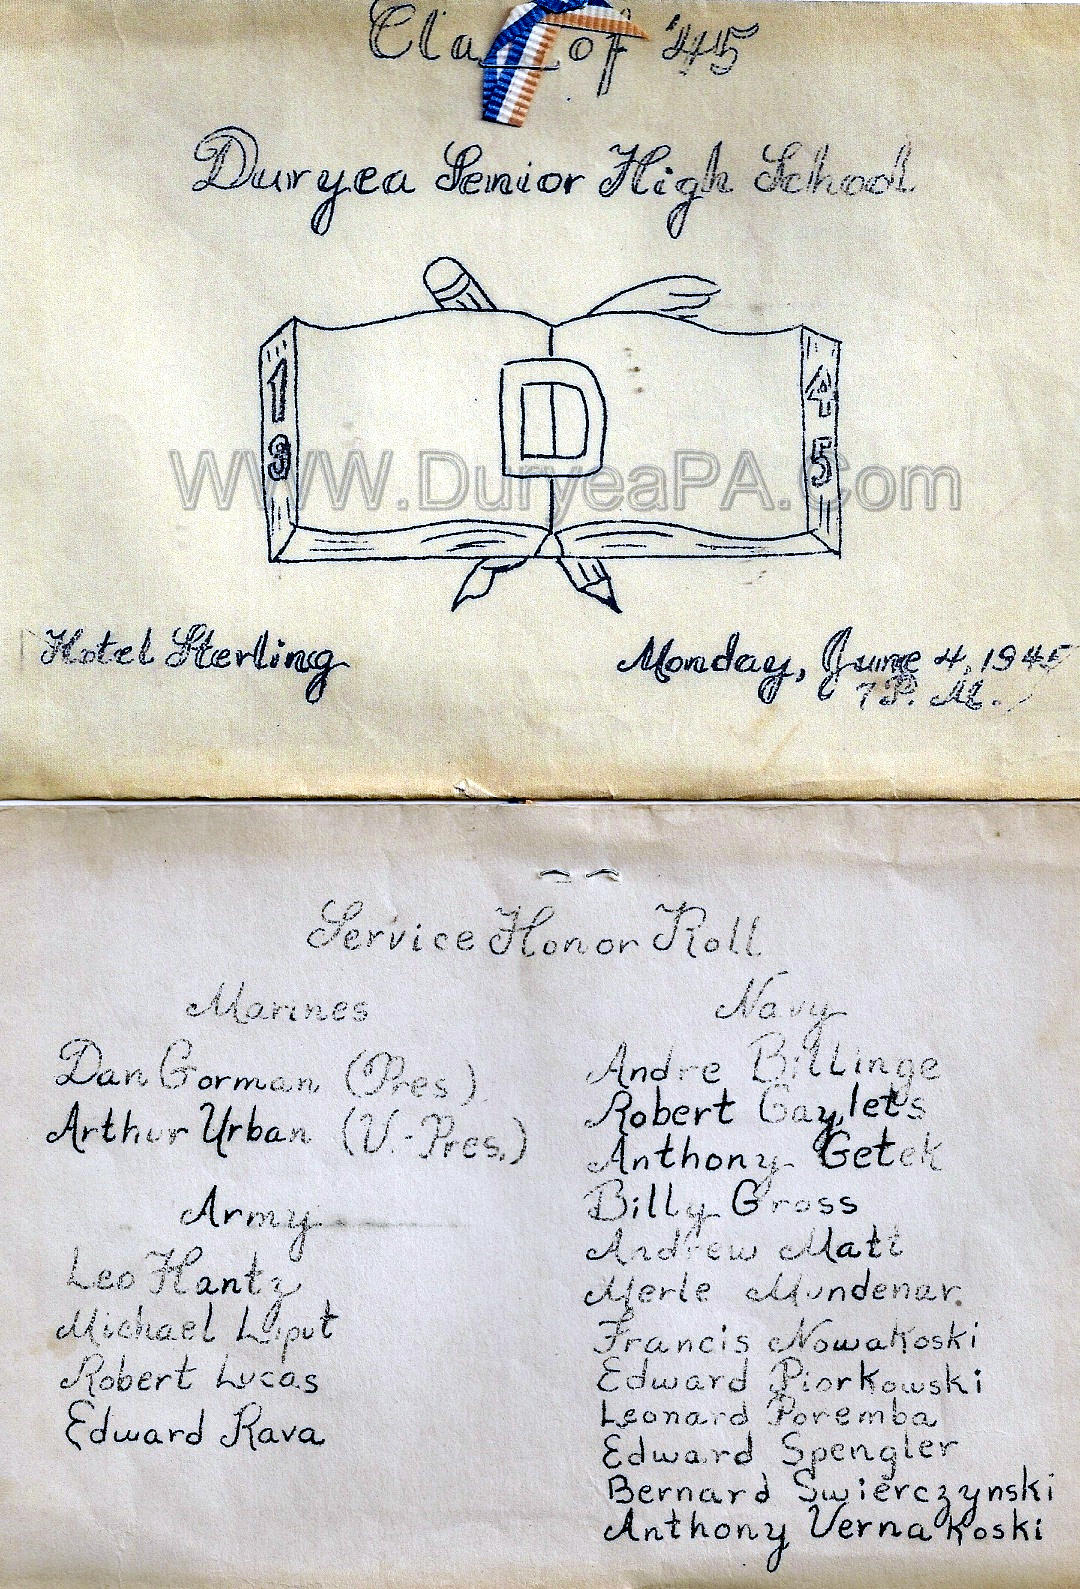 Class of '45
Duryea Senior High School
1 4
9 5
D
WWW.DuryeaPA.Com
Hotel Sterling
Monday, June 4, 1945
7 P. M.
Service Honor Roll
Marines
Dan Gorman (Pres)
Arthur Urban (V.-Pres.)
Army
Leo Hantz
Michael Liput
Robert Lucas
Edward Rava
Navy
Andre Billinge
Robert Gaylets
Anthony Getek
Billy Gross
Andrew Matt
Merle Mundenar.
Francis Nowakoski
Edward Piorkowski
Leonard Poremba
Edward Spengler
Bernard Swierczynski
Anthony Vernakoski